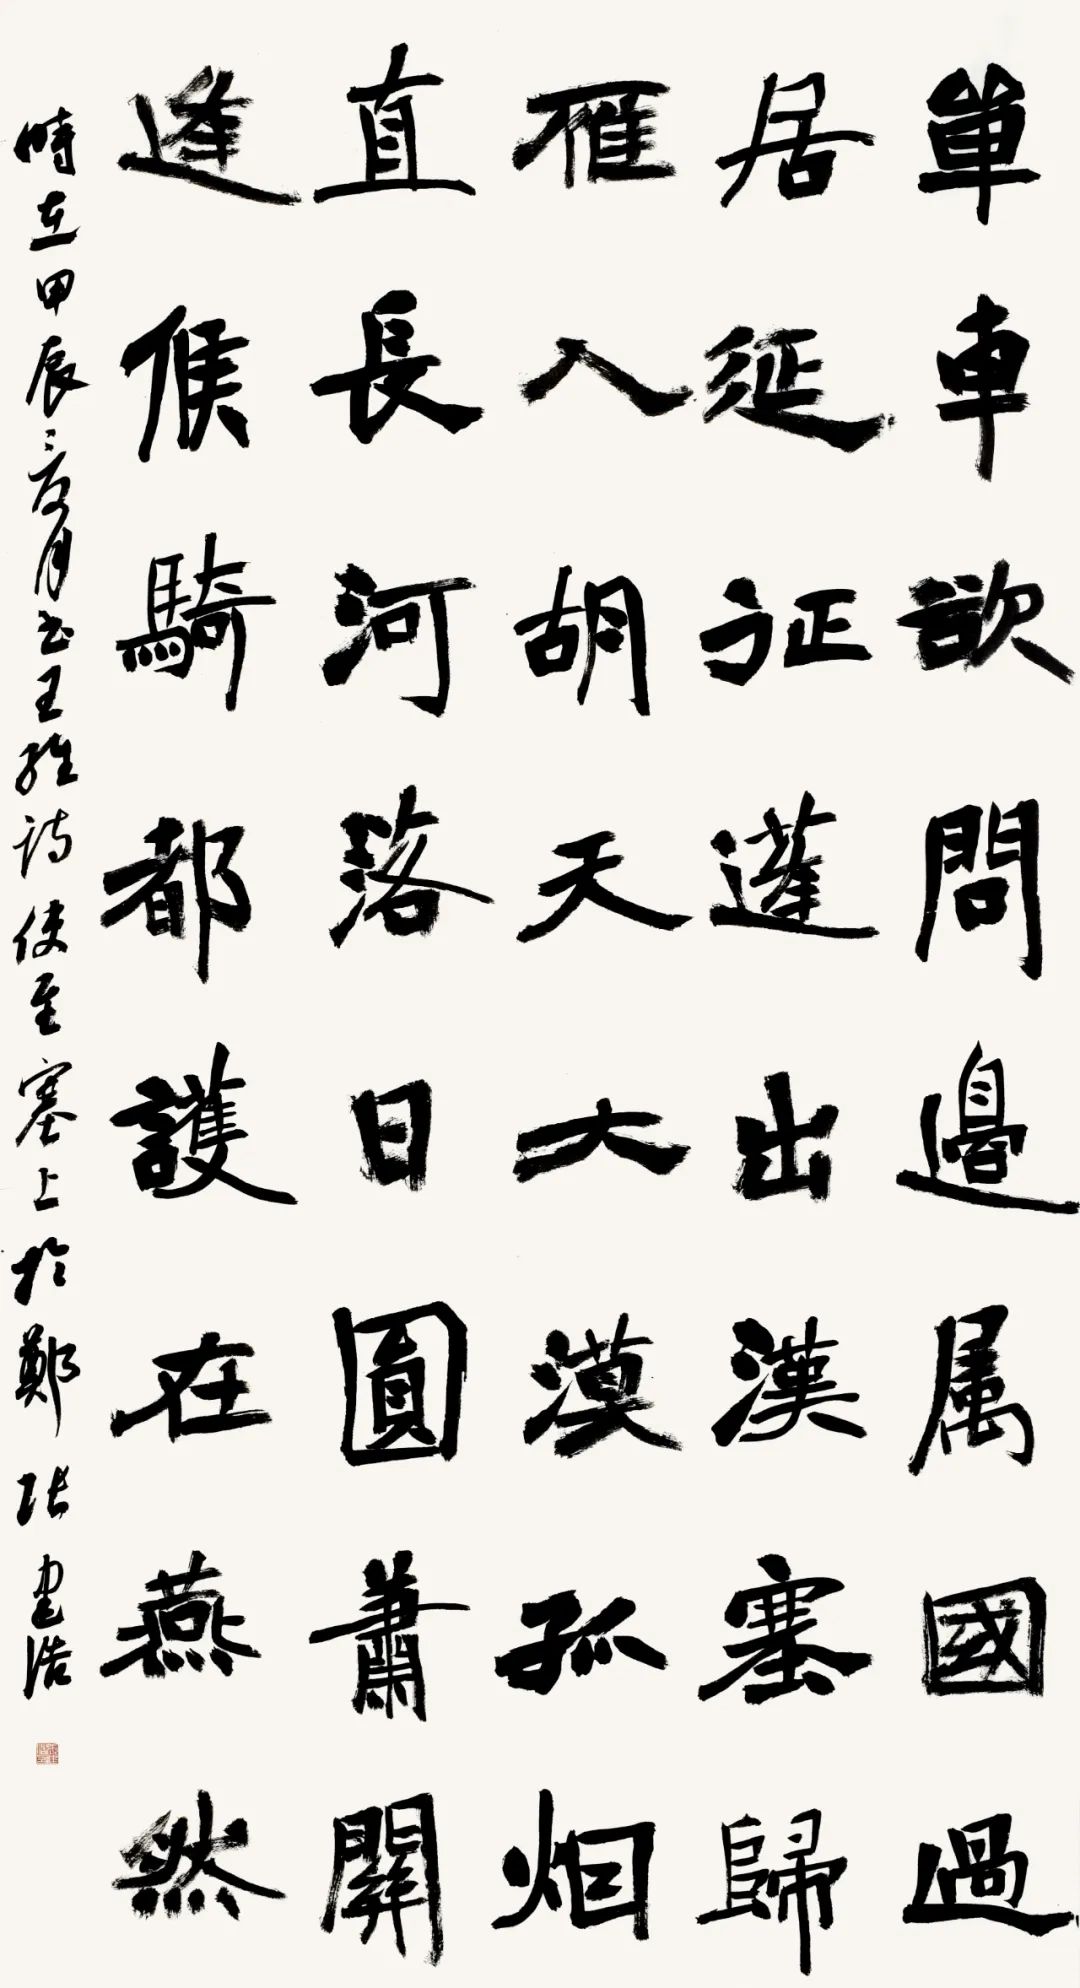 單車欲問邊属國過
居延征蓬出漢塞歸
雁入胡天大漠孤烟
直長河落日圓蕭關
逢候騎都護在燕然
時在甲辰之夏月书王維詩使至塞上於鄭張建浩